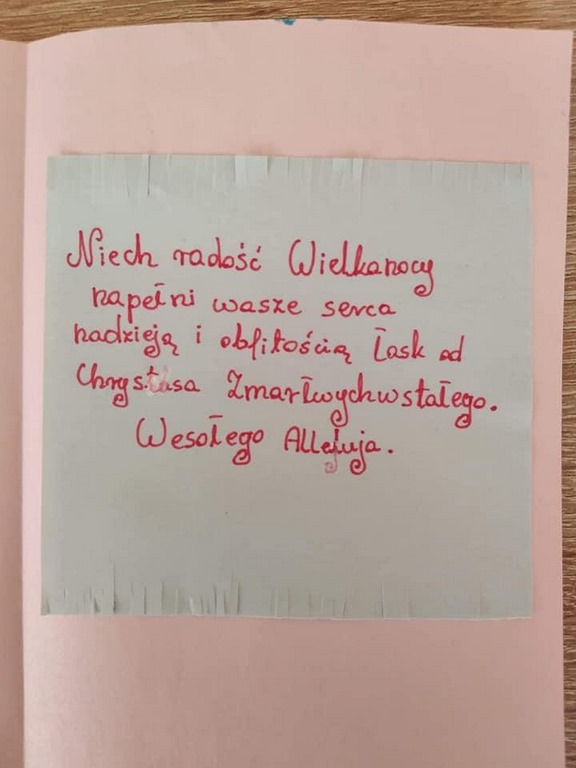 Niech radość Wielkanocy
napełni wasze serca
nadzieją i obfitością łask od
Chrystusa Zmartwychwstałego.
Wesołego Alleluja.